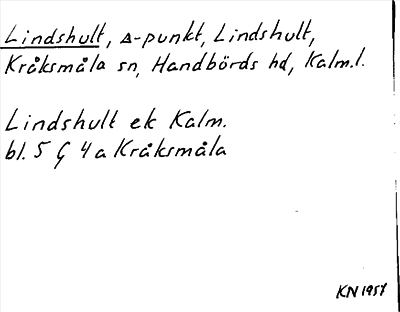 Lindshult, △-punkt, Lindshult,
Kråksmåla sn, Handbörds hd, Kalm.l.
Lindshult ek Kalm.
bl. 5 G 4 a Kråksmåla
KN 1957